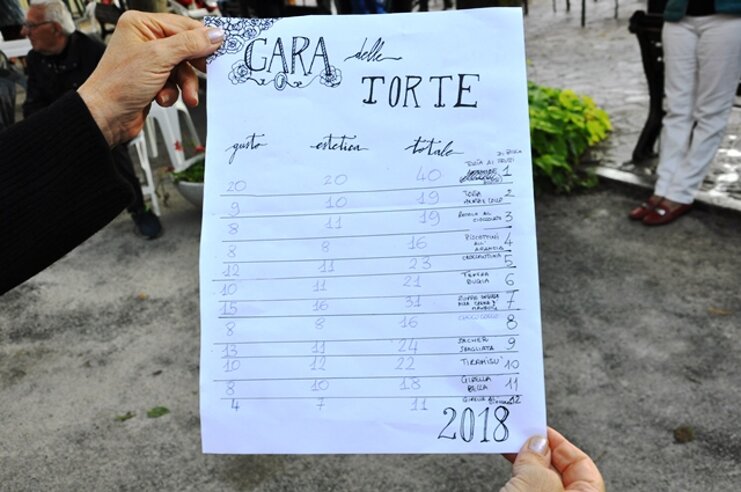 GARA delle
TORTE
gusto estetica totale
20 20 40 TORTA AI FRUTTI DI BOSCO 1
9 10 19 TORTA 2
8 11 19 AL CIOCCOLATO 3
8 8 16 BISCOTTINI ALL' ARANCIA 4
12 11 23 5
10 11 21 TENERA BUGIA 6
15 16 31 7
8 8 16 8
13 11 24 SACHER SBAGLIATA 9
10 12 22 TIRAMISU' 10
8 10 18 GIRELLA BELLA 11
4 7 11 GIRELLA AL 12
2018